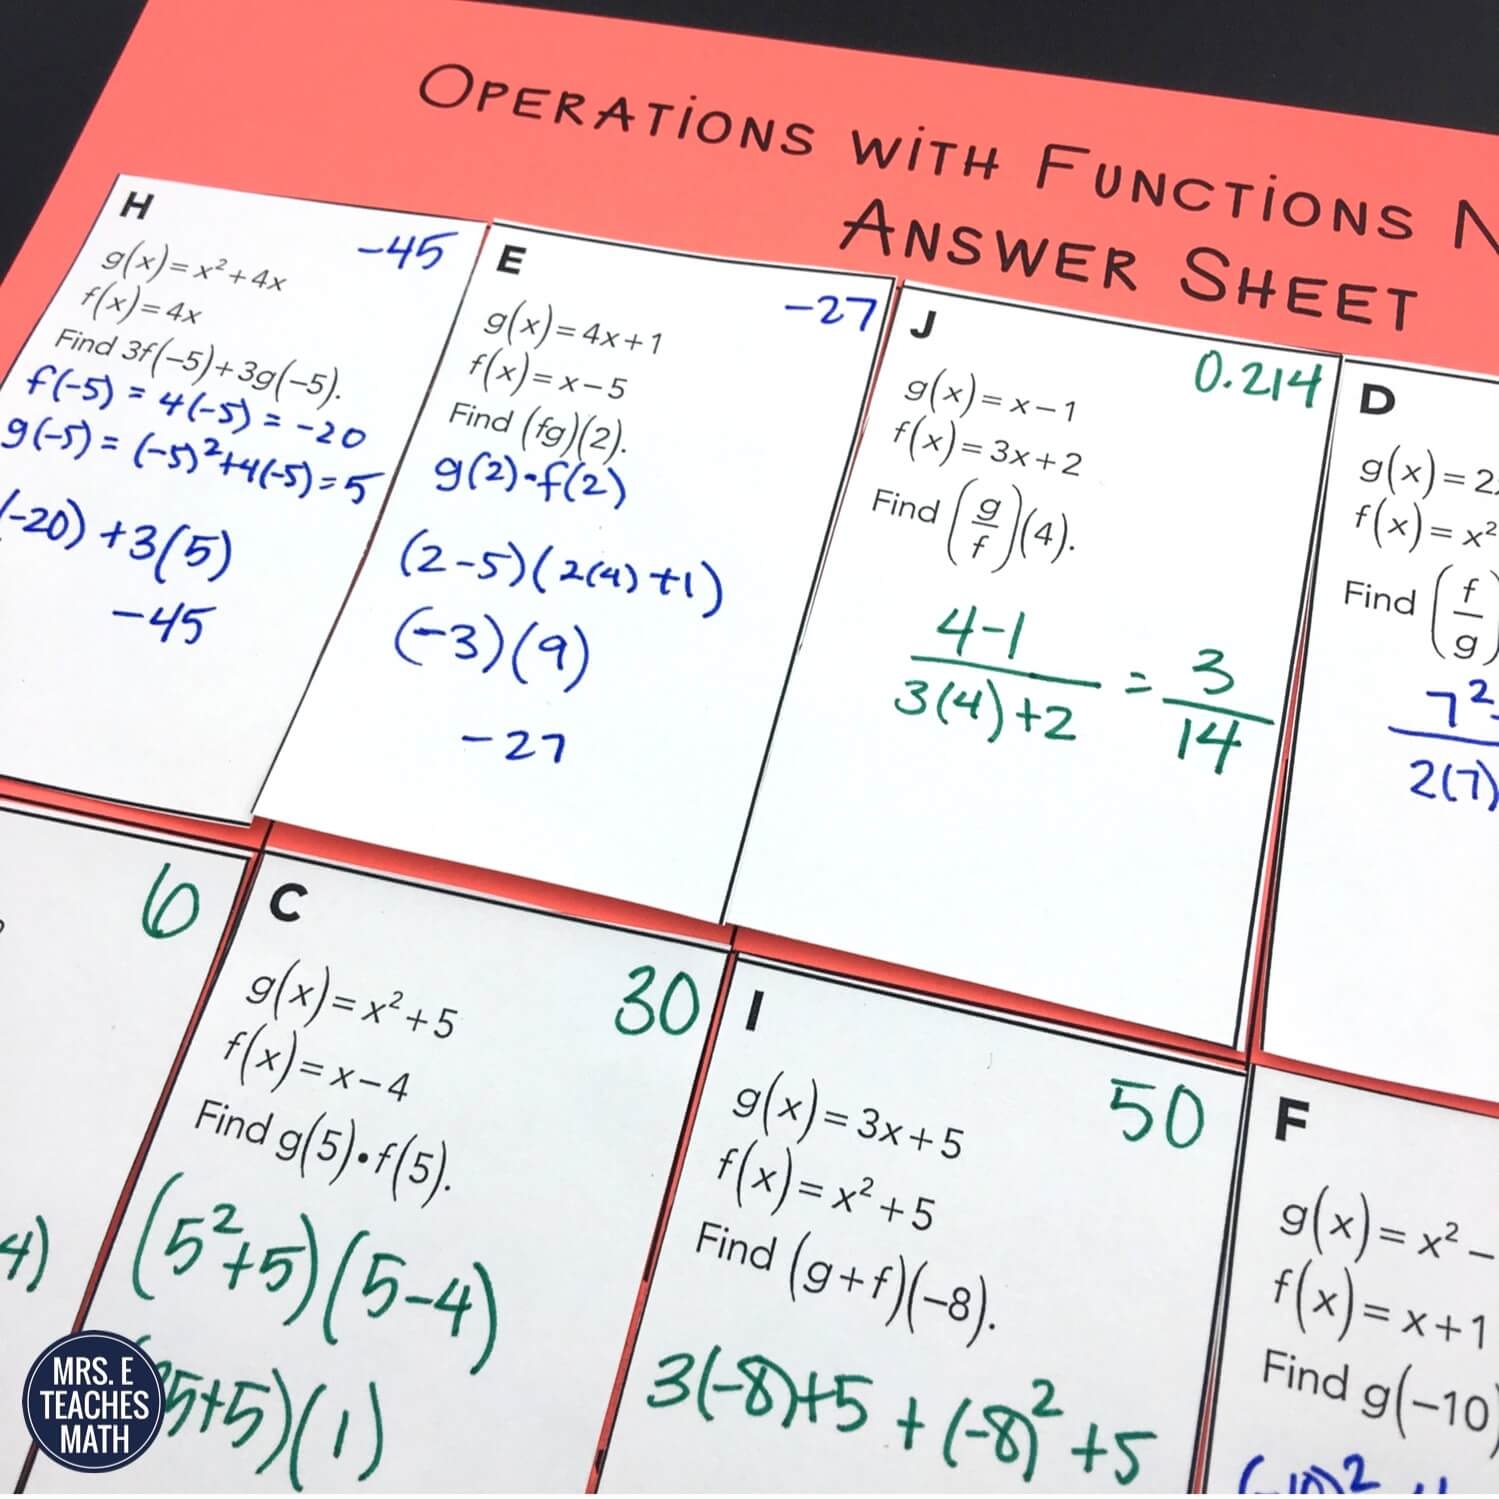 OPERATIONS WITH FUNCTIONS
ANSWER SHEET
H
-45
g(x)=x²+4x
f(x)=4x
Find 3f(−5)+3g(−5).
f(-5) = 4(-5) = -20
g(-5) = (-5)²+4(-5)=5
(-20) +3(5)
-45
E
-27
g(x)=4x+1
f(x)=x−5
Find (fg)(2).
g(2)·f(2)
(2-5)(2(4)+1)
(-3)(9)
-27
J
0.214
g(x)=x−1
f(x)=3x+2
Find (g/f)(4).
4-1
3(4)+2
= 3
14
D
g(x)=2
f(x)=x²
Find (f/g)
7²-
2(7)
6
4)
C
30
g(x)=x²+5
f(x)=x−4
Find g(5)•f(5).
(5²+5)(5-4)
5+5)(1)
I
50
g(x)=3x+5
f(x)=x²+5
Find (g+f)(−8).
3(-8)+5 + (-8)² +5
F
g(x)=x²−
f(x)=x+1
Find g(−10)
(-10)²
MRS. E
TEACHES
MATH